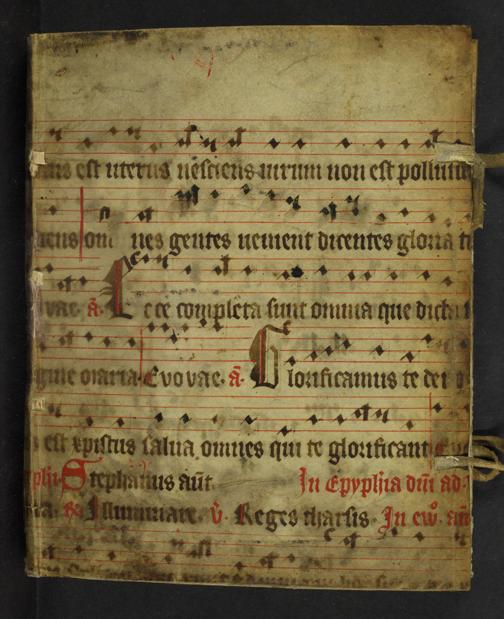 est uterus nesciens uirum non est pollutus
om nes gentes uenient dicentes gloria ti
vae. a. Ecce completa sunt omnia que dicta
gine maria Evovae. a. Glorificamus te dei
est xpistus salua omnes qui te glorificant
Stephanus aut. In Epyphia dni ad
Illuminare. v. Reges tharsis. In ev. an